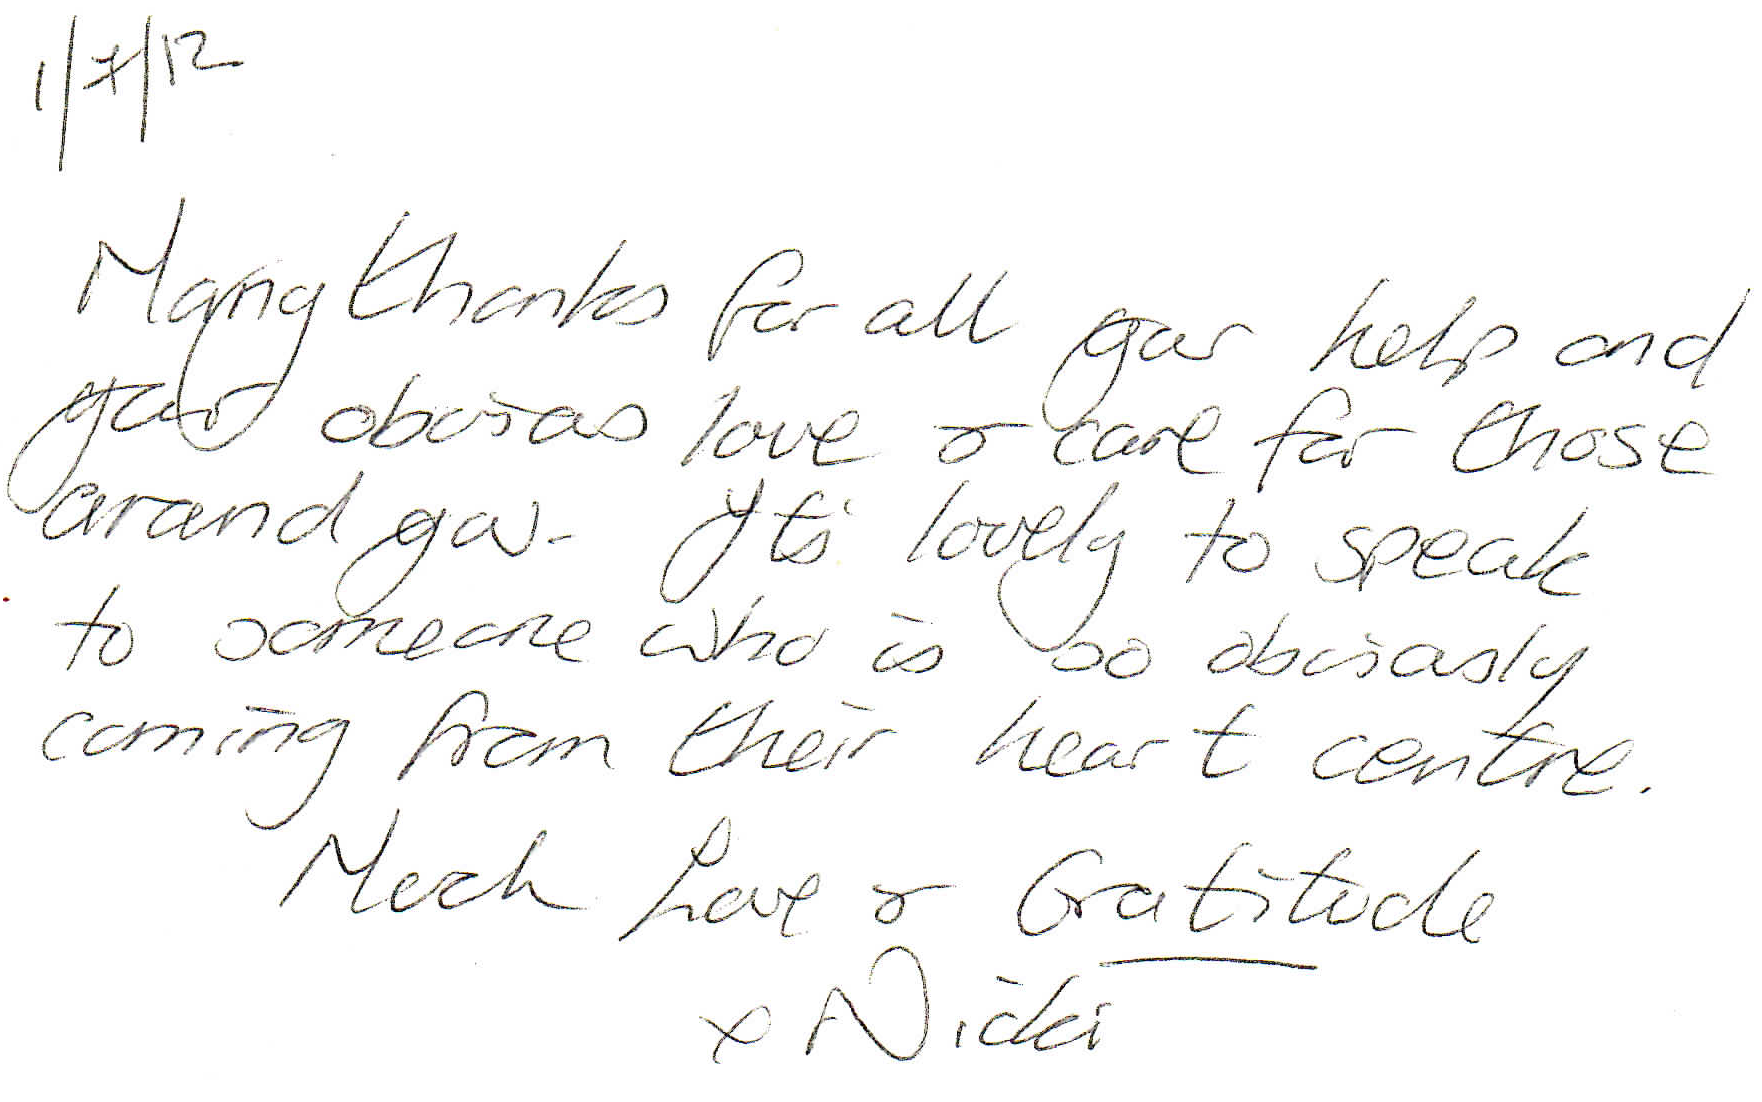 1/7/12
Many thanks for all your help and
your obvious love & care for those
around you. It's lovely to speak
to someone who is so obviously
coming from their heart centre.
Much Love & Gratitude
x Nicki